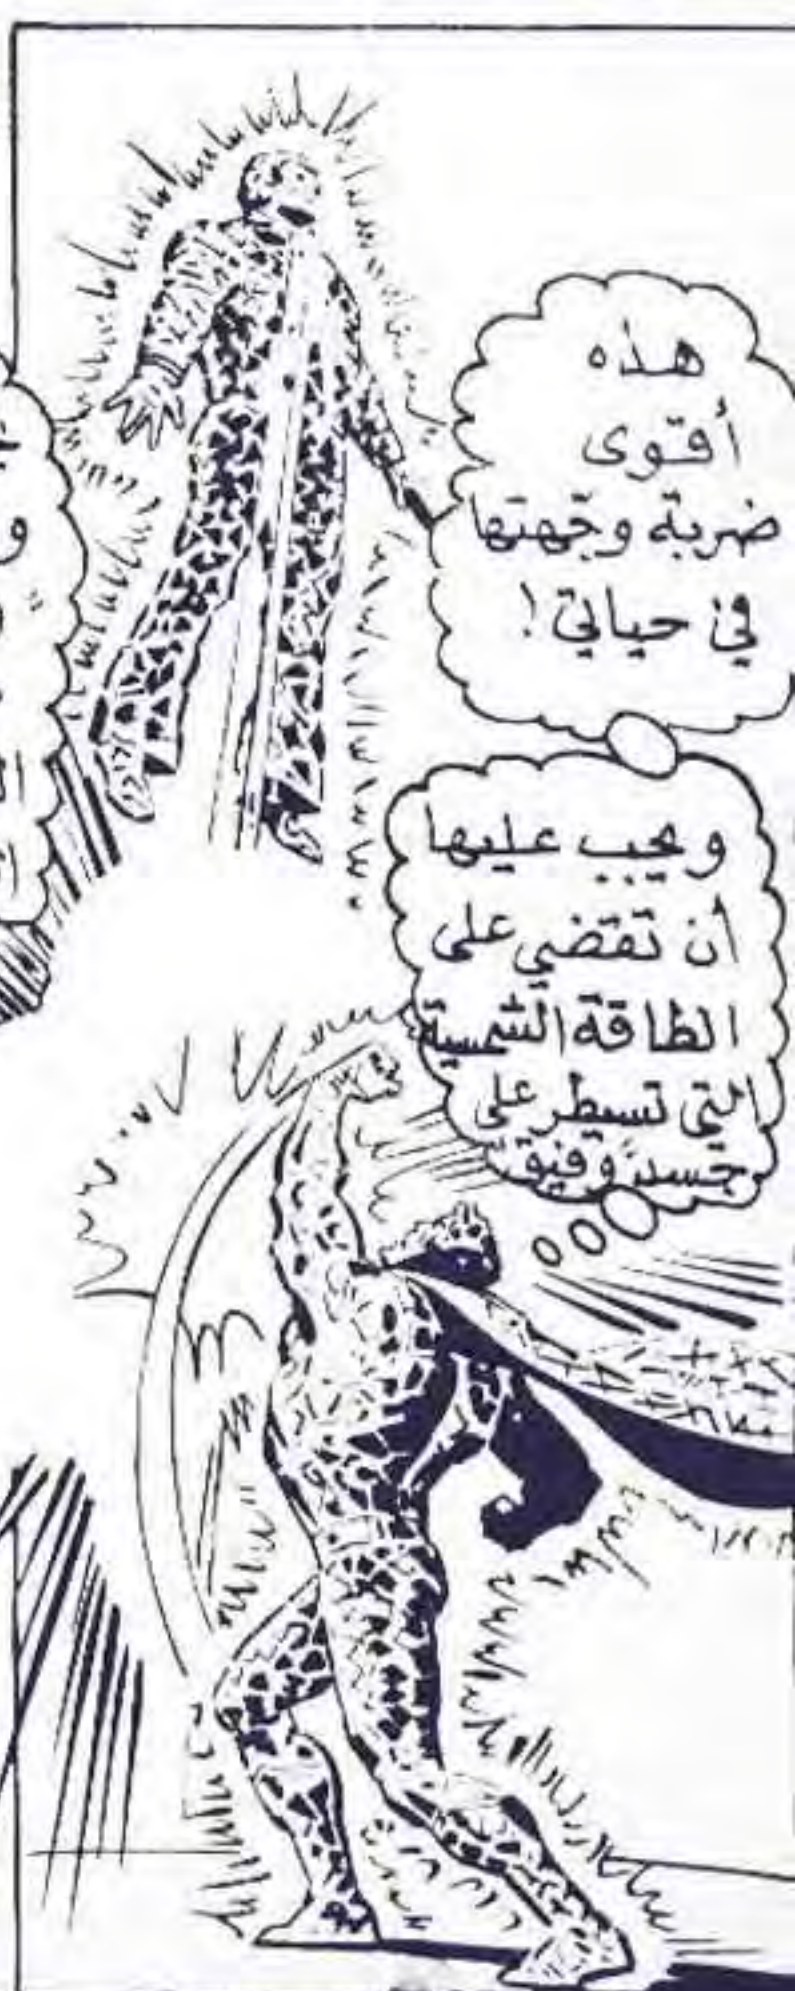 هذه
أقوى
ضربة وجّهتها
في حياتي !
و يجب عليها
أن تقضي على
الطاقة الشّمسيّة
التي تسيطر على
جسد "وفيق"